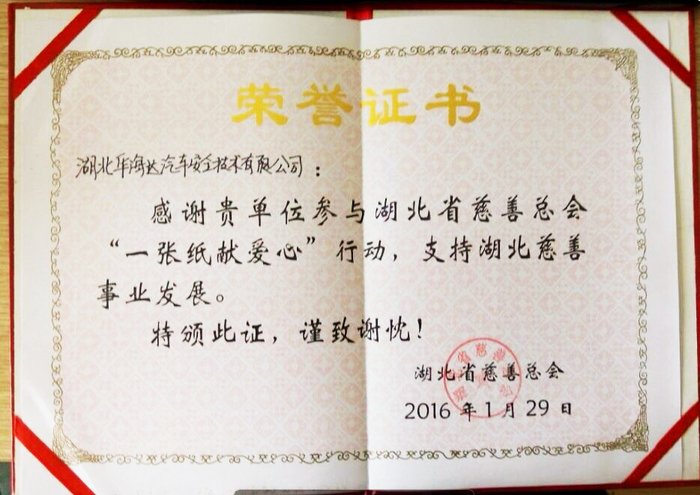 荣誉证书
湖北华海达汽车安全技术有限公司：
感谢贵单位参与湖北省慈善总会
“一张纸献爱心”行动，支持湖北慈善
事业发展。
特颁此证，谨致谢忱！
湖北省慈善总会
2016 年 1 月 29 日